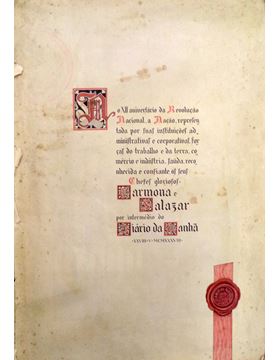 No XII aniversário da Revolução
Nacional, a Nação, represen
tada por suas instituições ad
ministrativas e corporativas, for
ças do trabalho e da terra, co
mércio e indústria, saúda, reco
nhecida e confiante os seus
Chefes gloriosos-
Carmona e
Salazar
por intermédio do
Diário da Manhã
·XXVIII·V·MCMXXXVIII·